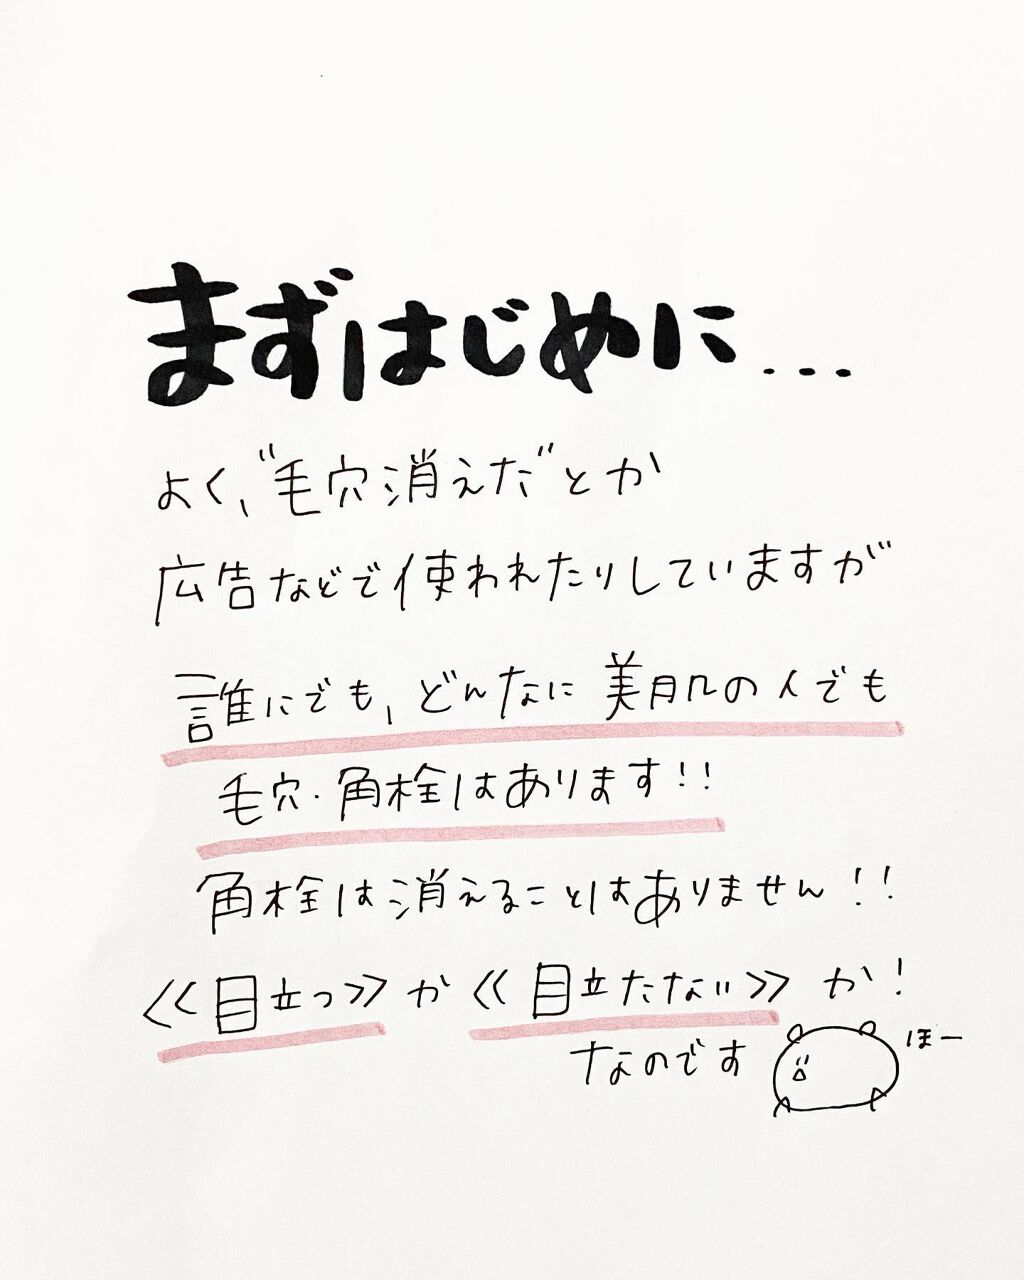 まずはじめに...
よく、"毛穴消えた"とか
広告などで使われたりしていますが
誰にでも、どんなに美肌の人でも
毛穴・角栓はあります!!
角栓は消えることはありません!!
≪目立つ≫か≪目立たない≫か!
なのです
ほー